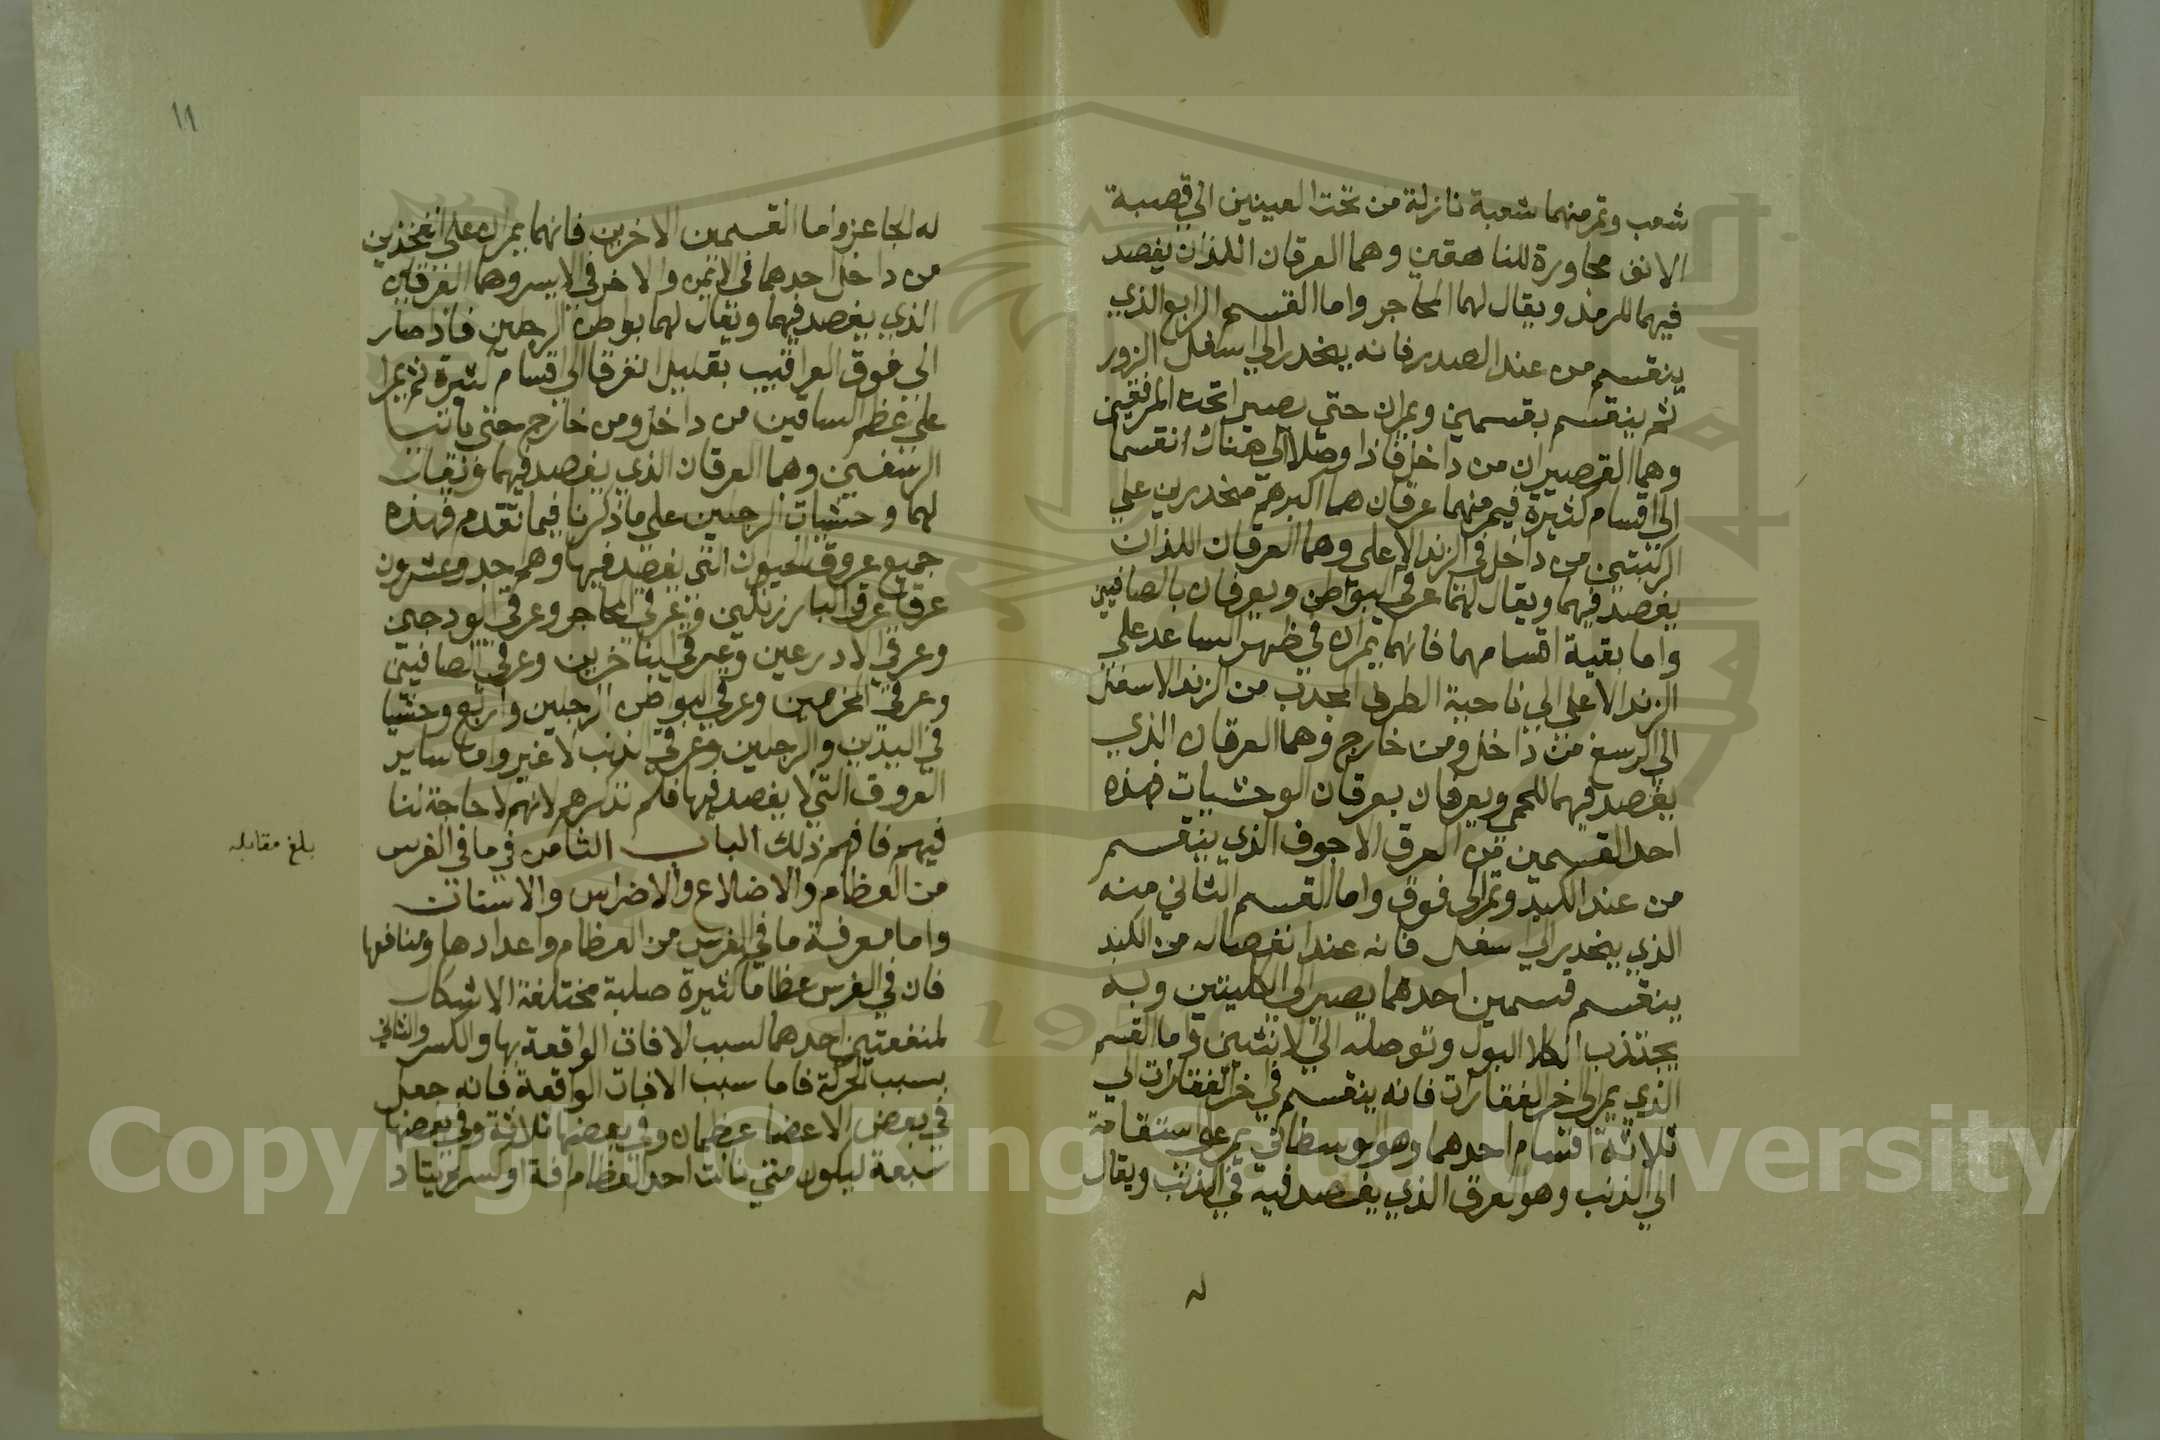 شعب وتمر منهما شعبة نازلة من تحت العينين الي قصبة
الانف مجاورة للناهقين وهما العرقان اللذان يفصد
فيهما للرمد ويقال لهما المحاجر واما القسم الرابع الذي
ينقسم من عند الصدر فانه ينحدر الي اسفل الزور
ثم ينقسم بقسمين ويمران حتي يصيرا تحت المرفقين
وهما القصيران من داخل فاذا وصلا الي هناك انقسما
الي اقسام كثيرة فيمر منهما عرقان هما اكبرهم منحدرين علي
الركبتين من داخل في الزند الاعلي وهما العرقان اللذان
يفصد فيهما ويقال لهما عرقي البواطن ويعرفان بالصافنين
واما بقية اقسامهما فانهما يمران في ظهر الساعد علي
الزند الاعلي الي ناحية الطرف المحدب من الزند الاسفل
الي الرسغ من داخل ومن خارج وهما العرقان الذي
يفصد فيهما للحمر ويعرفان بعرقان الوحشيات فهذه
احد القسمين من العرق الاجوف الذي ينقسم
من عند الكبد وتمر الي فوق واما القسم الثاني منه
الذي ينحدر الي اسفل فانه عند انفصاله من الكبد
ينقسم قسمين احدهما يصير الي الكليتين وبه
يجتذب الكلا البول وتوصله الي الانثيين واما القسم
الذي يمر الي اخر الفقارات فانه ينقسم في اخر الفقارات الي
ثلاثة اقسام احدهما وهو الوسطاني يمر علي استقامة
الي الذنب وهو العرق الذي يفصد فيه في الذنب ويقال
له
١١
له الجاعز واما القسمين الاخرين فانهما يمران علي الفخذين
من داخل احدهما في الايمن والاخر في الايسر وهما العرقان
الذي يفصد فيهما ويقال لهما بواطن الرجلين فاذا صار
الي فوق العراقيب بقليل انفرقا الي اقسام كثيرة ثم يمرا
علي عظم الساقين من داخل ومن خارج حتي ياتيا
الرسغين وهما العرقان الذي يفصد فيهما ويقال
لهما وحشيات الرجلين علي ما ذكرنا فيما تقدم فهذه
جميع عروق العيون التي يفصد فيها وهم احد وعشرون
عرقا عرقي البازرنكين وعرقي المحاجر وعرقي الودجين
وعرقي الادرعين وعرقي الناخرين وعرقي الصافنين
وعرقي المحزمين وعرقي البواطن الرجلين واربع وحشيا
في اليدين والرجلين وعرقي الذنب لا غير واما ساير
العروق التي لا يفصد فيها فلم نذكرهم لانهم لا حاجة لنا
فيهم فافهم ذلك الباب الثامن في ما في الفرس
بلغ مقابله
من العظام والاضلاع والاضراس والاسنان
واما معرفة ما في الفرس من العظام واعدادها ومنافعها
فان في الفرس عظاما كثيرة صلبة مختلفة الاشكال
لمنفعتين احدهما لسبب الافات الواقعة بها والكسر والثاني
بسبب الحركة فاما سبب الافات الواقعة فانه جعل
في بعض الاعضا عظمان وفي بعضها ثلاثة وفي بعضها
سبعة ليكون متي نالت احد العظام افة او كسر يتاد